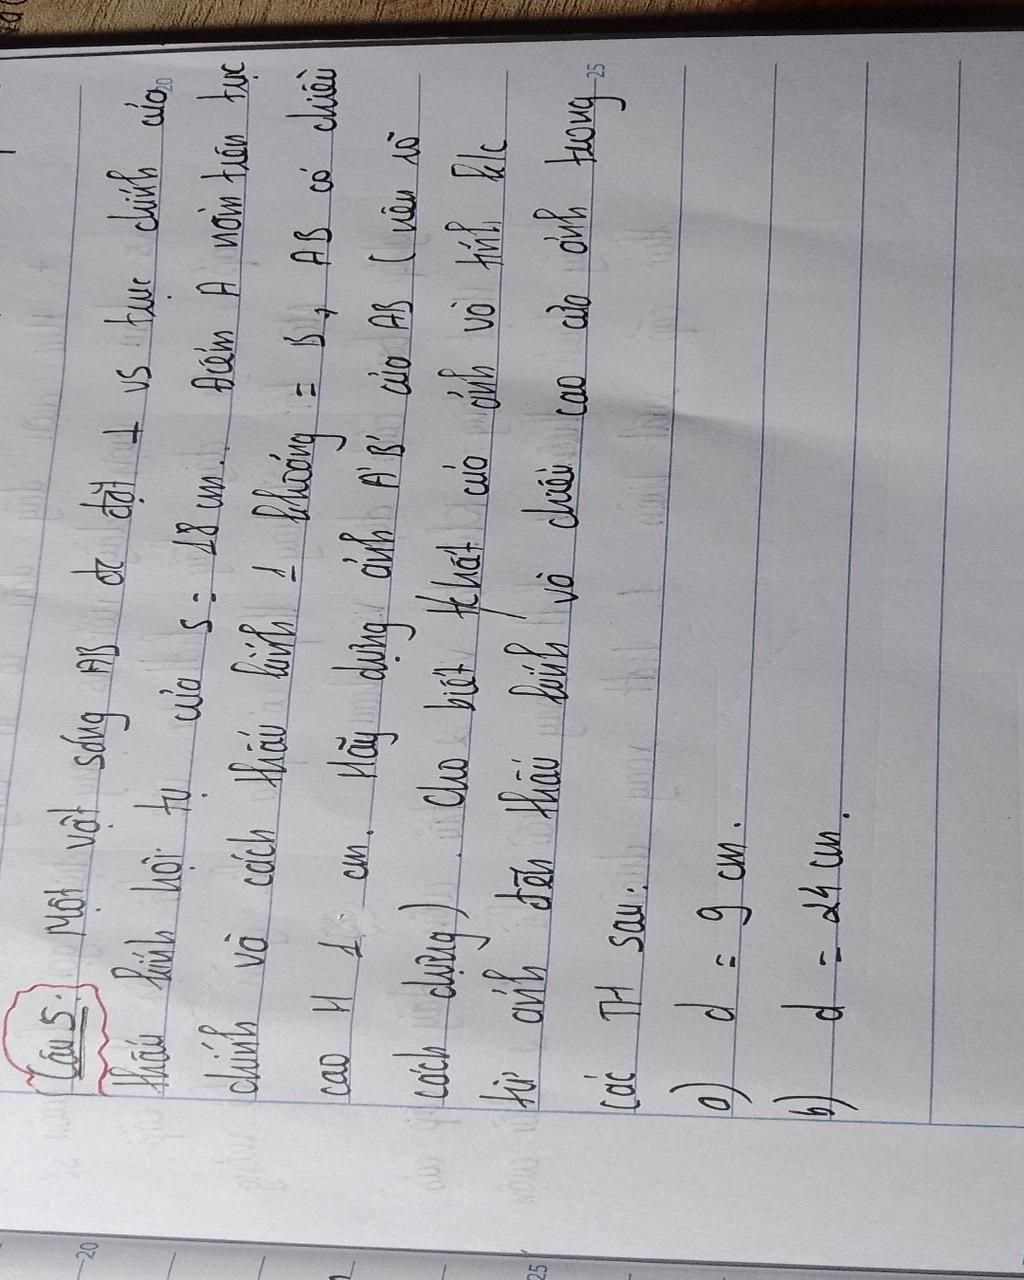 Câu 5. Một vật sáng AB đc đặt ⊥ vs trục chính của
thấu kính hội tụ của s = 18 cm. Điểm A nằm trên trục
chính và cách thấu kính 1 khoảng = D, AB có chiều
cao H 1 cm. Hãy dựng ảnh A'B' của AB (nêu rõ
cách dựng). cho biết t/chất của ảnh và tính k/c
từ ảnh đến thấu kính và chiều cao của ảnh trong
các TH sau.
a) d = 9 cm.
b) d = 24 cm.
20
25
20
25